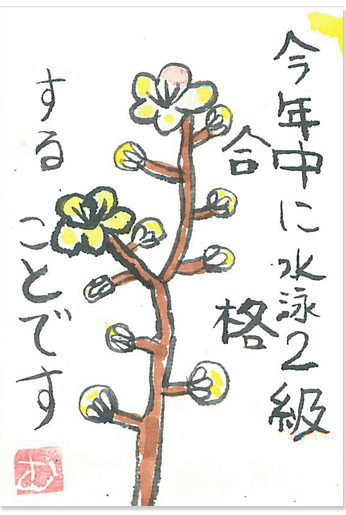 今年中に水泳2級
合格
する
ことです
む